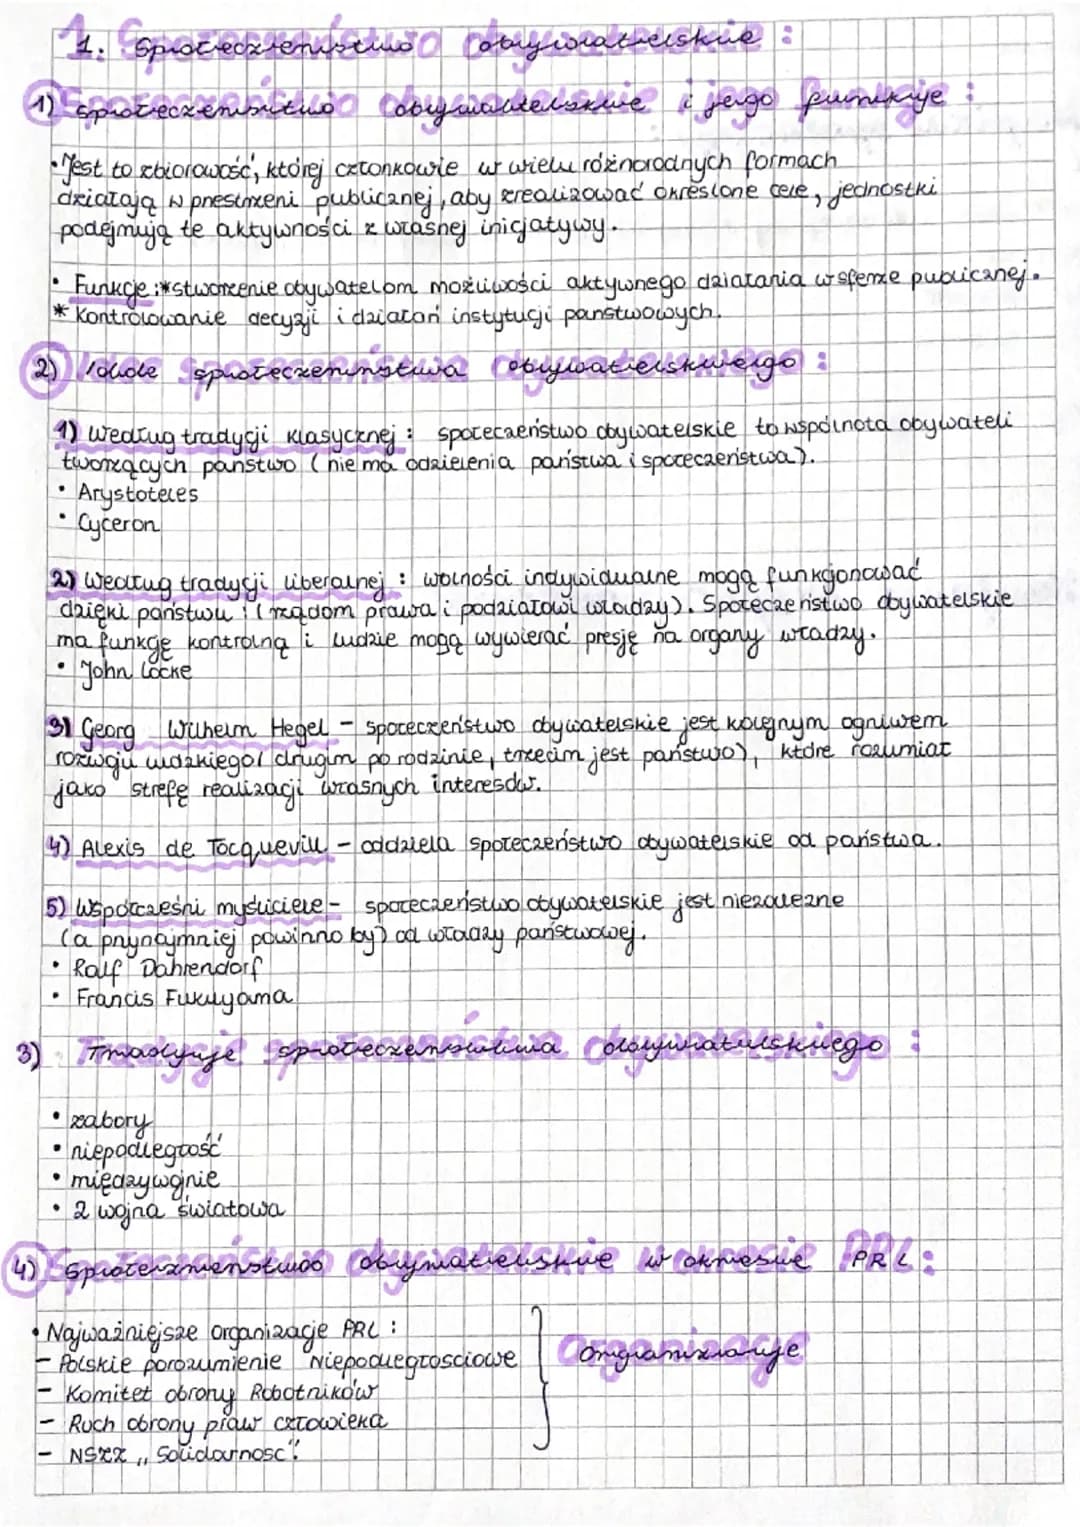 1. Społeczeństwo obywatelskie :
1) społeczeństwo obywatelskie i jego funkcje :
• Jest to zbiorowość, której członkowie w wielu różnorodnych formach
działają w przestrzeni publicznej, aby zrealizować określone cele, jednostki
podejmują te aktywności z własnej inicjatywy.
• Funkcje : * stworzenie obywatelom możliwości aktywnego działania w sferze publicznej.
* Kontrolowanie decyzji i działań instytucji państwowych.
2) Idee społeczeństwa obywatelskiego :
1) Według tradycji klasycznej : społeczeństwo obywatelskie to wspólnota obywateli
tworzących państwo ( nie ma oddzielenia państwa i społeczeństwa ).
• Arystoteles
• Cyceron
2) Według tradycji liberalnej : wolności indywidualne mogą funkcjonować
dzięki państwu : ( rządom prawa i podziałowi władzy ). Społeczeństwo obywatelskie
ma funkcję kontrolną i ludzie mogą wywierać presję na organy władzy.
• John Locke
3) Georg Wilhelm Hegel - społeczeństwo obywatelskie jest kolejnym ogniwem
rozwoju ludzkiego ( drugim po rodzinie, trzecim jest państwo ), które rozumiał
jako strefę realizacji własnych interesów.
4) Alexis de Tocquevill - oddziela społeczeństwo obywatelskie od państwa.
5) Współcześni myśliciele - społeczeństwo obywatelskie jest niezależne
( a przynajmniej powinno by ) od władzy państwowej.
• Ralf Dahrendorf
• Francis Fukuyama
3) Tradycje społeczeństwa obywatelskiego :
• zabory
• niepodległość
• międzywojnie
• 2 wojna światowa
4) Społeczeństwo obywatelskie w okresie PRL :
• Najważniejsze organizacje PRL :
- Polskie porozumienie Niepodległosciowe
- Komitet obrony Robotników
- Ruch obrony praw człowieka
- NSZZ „ Solidarnosc".
Organizacje